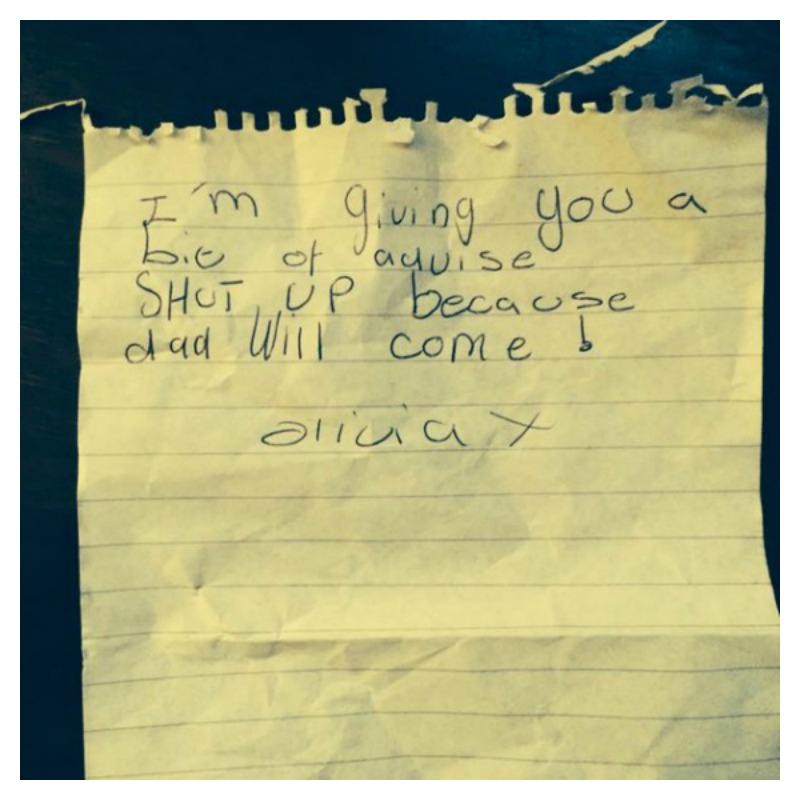 I'm giving you a
bic of advise
SHUT UP because
dad Will come !
olivia x